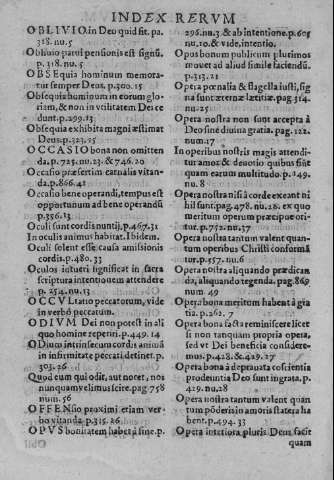 INDEX RERUM
OBLIVIO in Deo quid sit. pa.
318. nu. 5
Obliuio parui pensionis est signũ.
p. 318. nu. 5
OBSEquia hominum memora-
tur semper Deus. p. 300. 15
Obsequia hominum in eorum glo-
riam, & non in vtilitatem Dei ce
dunt. p. 299. 13
Obsequia exhibita magni æstimat
Deus. p. 323. 15
OCCASIO bona non omitten
da. p. 725. nu. 23. & 746. 20
Occasio præsertim carnalis vitan-
da. p. 866. 41
Occasio bene operandi, tempus est
opportunum ad bene operandũ
p. 356. 13
Oculi sunt cordis nuntij. p. 467. 31
In oculis animus habitat. Ibidem.
Oculi solent esse causa amissionis
cordis. p. 480. 33
Oculos intueri significat in sacra
scriptura intentionem attendere
p. 254. nu. 13
OCCVLtatio peccatorum, vide
in verbo peccatum.
ODIVM Dei non potest in ali
quo homine reperiri. p. 449. 14
Odium intrinsecum cordis animã
in infirmitate peccati detinet. p.
303. 26
Quod eum qui odit, aut nocet, nos
nunquam velimus scire. pag. 758
num. 56
OFFENSio proximi etiam ver-
bo vitanda. p. 315. 26
OPVS bonitatem habet à fine. p.
296. nu. 3. & ab intentione. p. 605
nu. 10. & vide, intentio.
Opus bonum publicum plurimos
mouet ad aliud simile faciendũ.
p. 313. 21
Opera pœnalia & flagella iusti, sig
na sunt æternæ lætitiæ. pag. 314.
nu. 25
Opera nostra non sunt accepta à
Deo sine diuina gratia. pag. 122.
num. 17
In operibus nostris magis attendi-
tur amor & deuotio quibus fiũt
quam earum multitudo. p. 149.
nu. 8
Opera nostra nisi à corde exeant ni
hil sunt. pag. 478. nu. 28. ex quo
meritum operum præcipue ori-
tur. p. 752. nu. 37
Opera nostra tantum valent quan-
tum operibus Christi conforma
tur. p. 557. nu. 6
Opera nostra aliquando prædican
da, aliquando tegenda. pag. 869
num. 49
Opera bona meritum habent à gra
tia. p. 262. 7
Opera bona facta reminiscere licet
si non tanquam propria opera,
sed vt Dei beneficia considere-
mus. p. 428. & 429. 27
Opera bona à deprauata cõscientia
prodeuntia Deo sunt ingrata. p.
429. nu. 28
Opera nostra tantum valent quan
tum põderis in amoris statera ha
bent. p. 494. 33
Opera interiora pluris Deus facit
quam